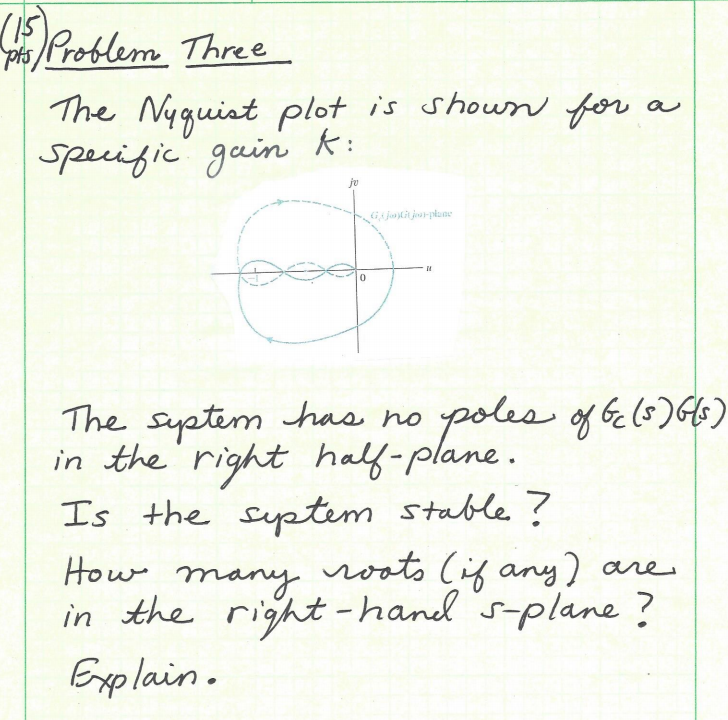 (15 pts) Problem Three
The Nyquist plot is shown for a
specific gain K:
jv
G_c(jω)G(jω)-plane
-1
0
u
The system has no poles of G_c(s)G(s)
in the right half-plane.
Is the system stable?
How many roots (if any) are
in the right-hand s-plane?
Explain.